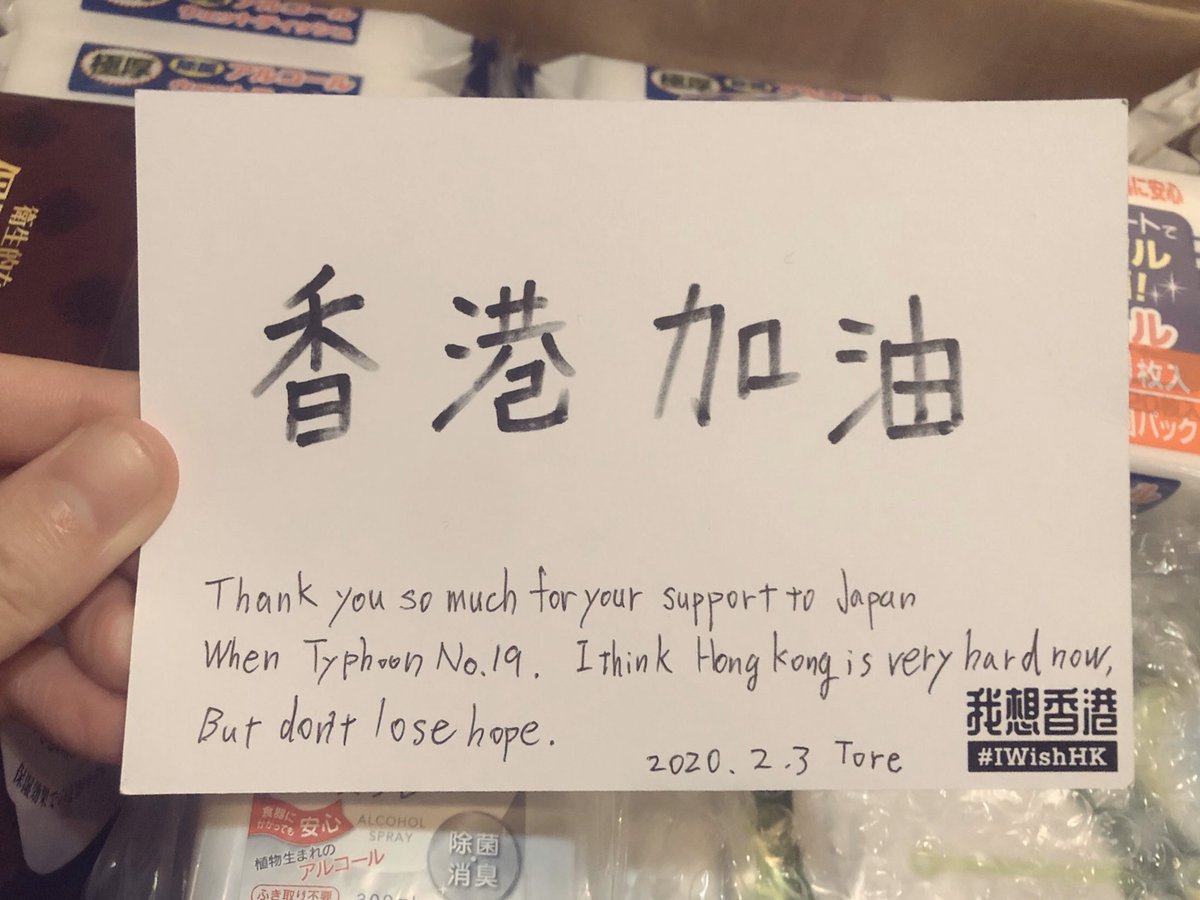 アルコール
ウェットティッシュ
極厚 除菌 アルコール
極厚
アルコール
衛生的な
に安心
ートで
ル
!
ル
枚入
パック
香港加油
Thank you so much for your support to Japan
When Typhoon No.19. I think Hong kong is very hard now,
But don't lose hope.
2020.2.3 Tore
我想香港
#IWishHK
食器に
かかっても 安心
ALCOHOL
SPRAY
植物生まれの
アルコール
除菌
消臭
ふき取り不要